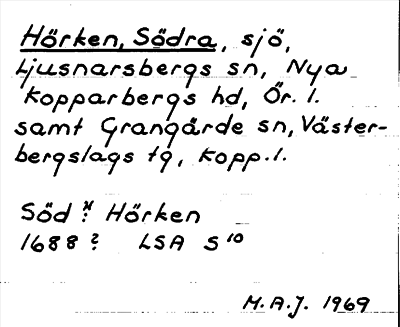 Hörken, Södra, sjö,
Ljusnarsbergs sn, Nya
Kopparbergs hd, Ör. l.
samt Grangärde sn, Väster-
bergslags tg, Kopp. l.
Söd ʳ Hörken
1688 ? LSA S 10
M.A.J. 1969